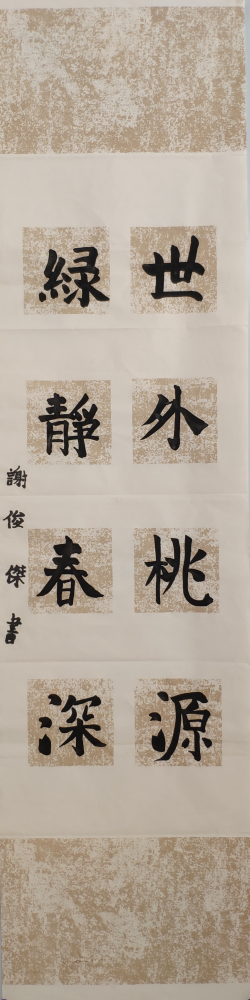 世外桃源
緑靜春深
謝俊傑書